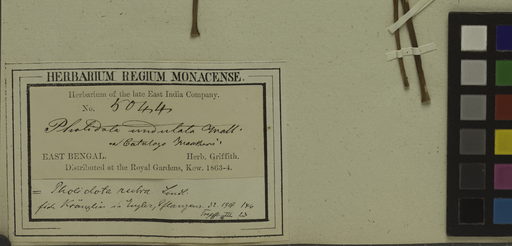 HERBARIUM REGIUM MONACENSE.
Herbarium of the late East India Company.
No. 5044
Pholidota undulata Wall.
e Catalogo
EAST BENGAL. Herb. Griffith.
Distributed at the Royal Gardens, Kew. 1863-4.
= Pholidota rubra Lindl.
fide Kränzlin in Engler, Pflanzenr. 32.